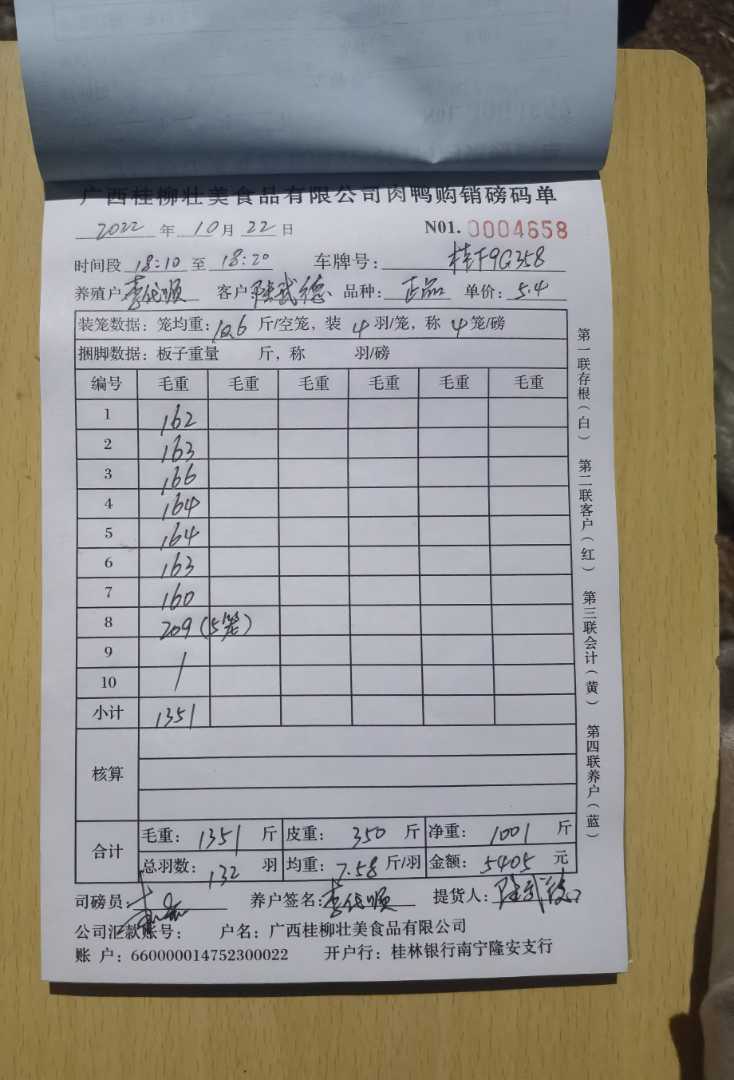 广西桂柳壮美食品有限公司肉鸭购销磅码单
2022 年 10 月 22 日 N01. 0004658
时间段 18:10 至 18:20 车牌号: 桂F9G358
养殖户 李 顺 客户 陆武德 品种: 正品 单价: 5.4
装笼数据: 笼均重: 10.6 斤/空笼, 装 4 羽/笼, 称 4 笼/磅
捆脚数据: 板子重量 斤, 称 羽/磅
编号 毛重 毛重 毛重 毛重 毛重 毛重
1 162
2 163
3 166
4 164
5 164
6 163
7 160
8 209 (5笼)
9 /
10
小计 1351
核算
合计 毛重: 1351 斤 皮重: 350 斤 净重: 1001 斤
总羽数: 132 羽 均重: 7.58 斤/羽 金额: 5405 元
司磅员: 养户签名: 李 顺 提货人: 陆武德
公司汇款账号: 户名: 广西桂柳壮美食品有限公司
账 户: 660000014752300022 开户行: 桂林银行南宁隆安支行
第一联存根(白) 第二联客户(红) 第三联会计(黄) 第四联养户(蓝)